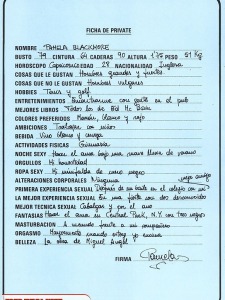 FICHA DE PRIVATE
NOMBRE PAMELA BLACKMORE
BUSTO 79 CINTURA 64 CADERAS 90 ALTURA 1'75 PESO 51 Kg
HOROSCOPO Capricornio EDAD 28 NACIONALIDAD Inglesa
COSAS QUE LE GUSTAN Hombres grandes y fuertes
COSAS QUE NO LE GUSTAN Hombres vulgares
HOBBIES Tenis y golf
ENTRETENIMIENTOS con gente en el pub
MEJORES LIBROS Todos los de Ed Mc Bain
COLORES PREFERIDOS Morado, blanco y rojo
AMBICIONES Trabajar con
BEBIDA Vino blanco y
ACTIVIDADES FISICAS Gimnasia
NOCHE SEXY Hacer el amor bajo una suave lluvia de verano
ORGULLOS Mi honestidad
ROPA SEXY Mi minifalda de cuero negro
ALTERACIONES CORPORALES Ninguna
PRIMERA EXPERIENCIA SEXUAL Después de un baile en el colegio con mi viejo amigo
LA MEJOR EXPERIENCIA SEXUAL En una fiesta con dos desconocidos
MEJOR TECNICA SEXUAL Cabalgar y en el ano
FANTASIAS Hacer el amor en Central Park, N.Y. con tres negros
MASTURBACION A cuando falta a mi compañero
ORGASMO cuando estoy yo encima
BELLEZA La obra de Miguel Angel
FIRMA Pamela